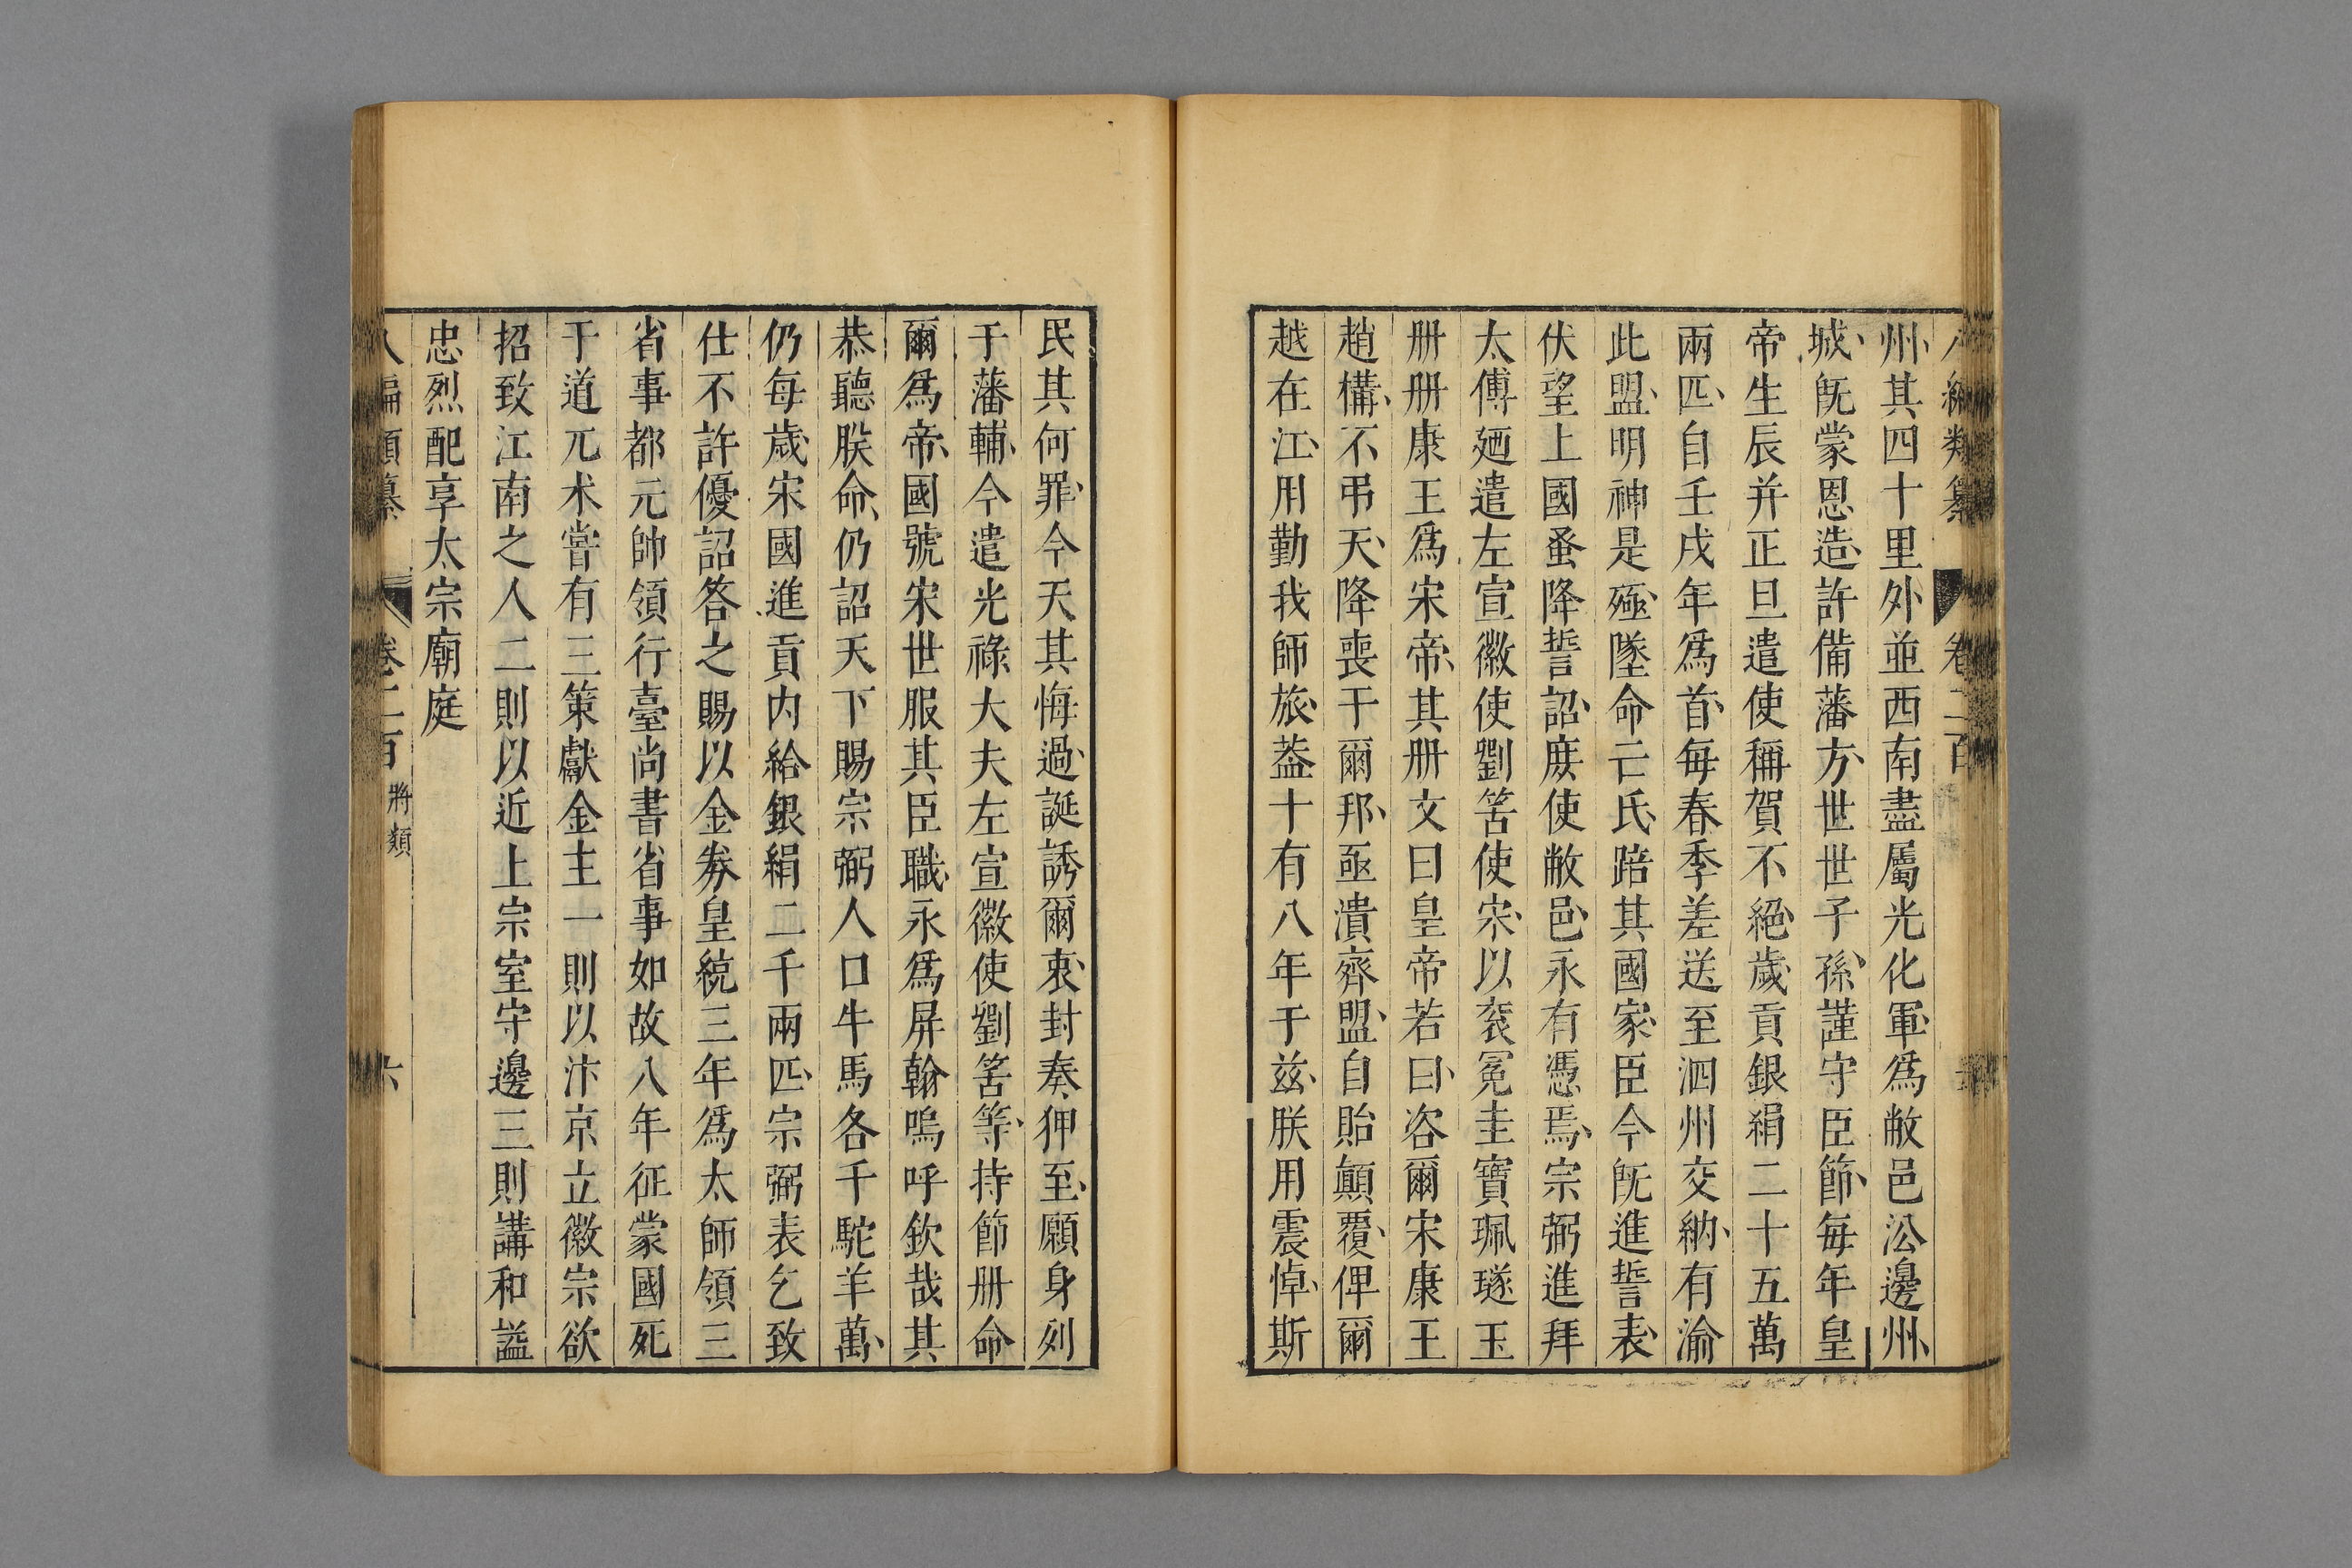 州其四十里外並西南盡屬光化軍爲敝邑㳂邊州
城旣蒙恩造許備藩方世世子孫謹守臣節每年皇
帝生辰并正旦遣使稱賀不絕歲貢銀絹二十五萬
兩匹自壬戌年爲首每春季差送至泗州交納有渝
此盟明神是殛墜命亡氏踣其國家臣今旣進誓表
伏望上國蚤降誓詔庻使敝邑永有憑焉宗弼進拜
太傅廼遣左宣徽使劉筈使宋以衮冕圭寶珮璲玉
册册康王爲宋帝其册文曰皇帝若曰咨爾宋康王
趙構不弔天降喪于爾邦亟瀆齊盟自貽顛覆俾爾
越在江用勤我師旅葢十有八年于兹朕用震悼斯
民其何罪今天其悔過誕誘爾衷封奏狎至願身列
于藩輔今遣光祿大夫左宣徽使劉筈等持節册命
爾爲帝國號宋世服其臣職永爲屏翰嗚呼欽哉其
恭聽朕命仍詔天下賜宗弼人口牛馬各千駝羊萬
仍每歲宋國進貢内給銀絹二千兩匹宗弼表乞致
仕不許優詔答之賜以金劵皇統三年爲太師領三
省事都元帥領行臺尚書省事如故八年征蒙國死
于道兀术嘗有三策獻金主一則以汴京立徽宗欲
招致江南之人二則以近上宗室守邊三則講和諡
忠烈配享太宗廟庭
編類纂 卷二百 將類 六